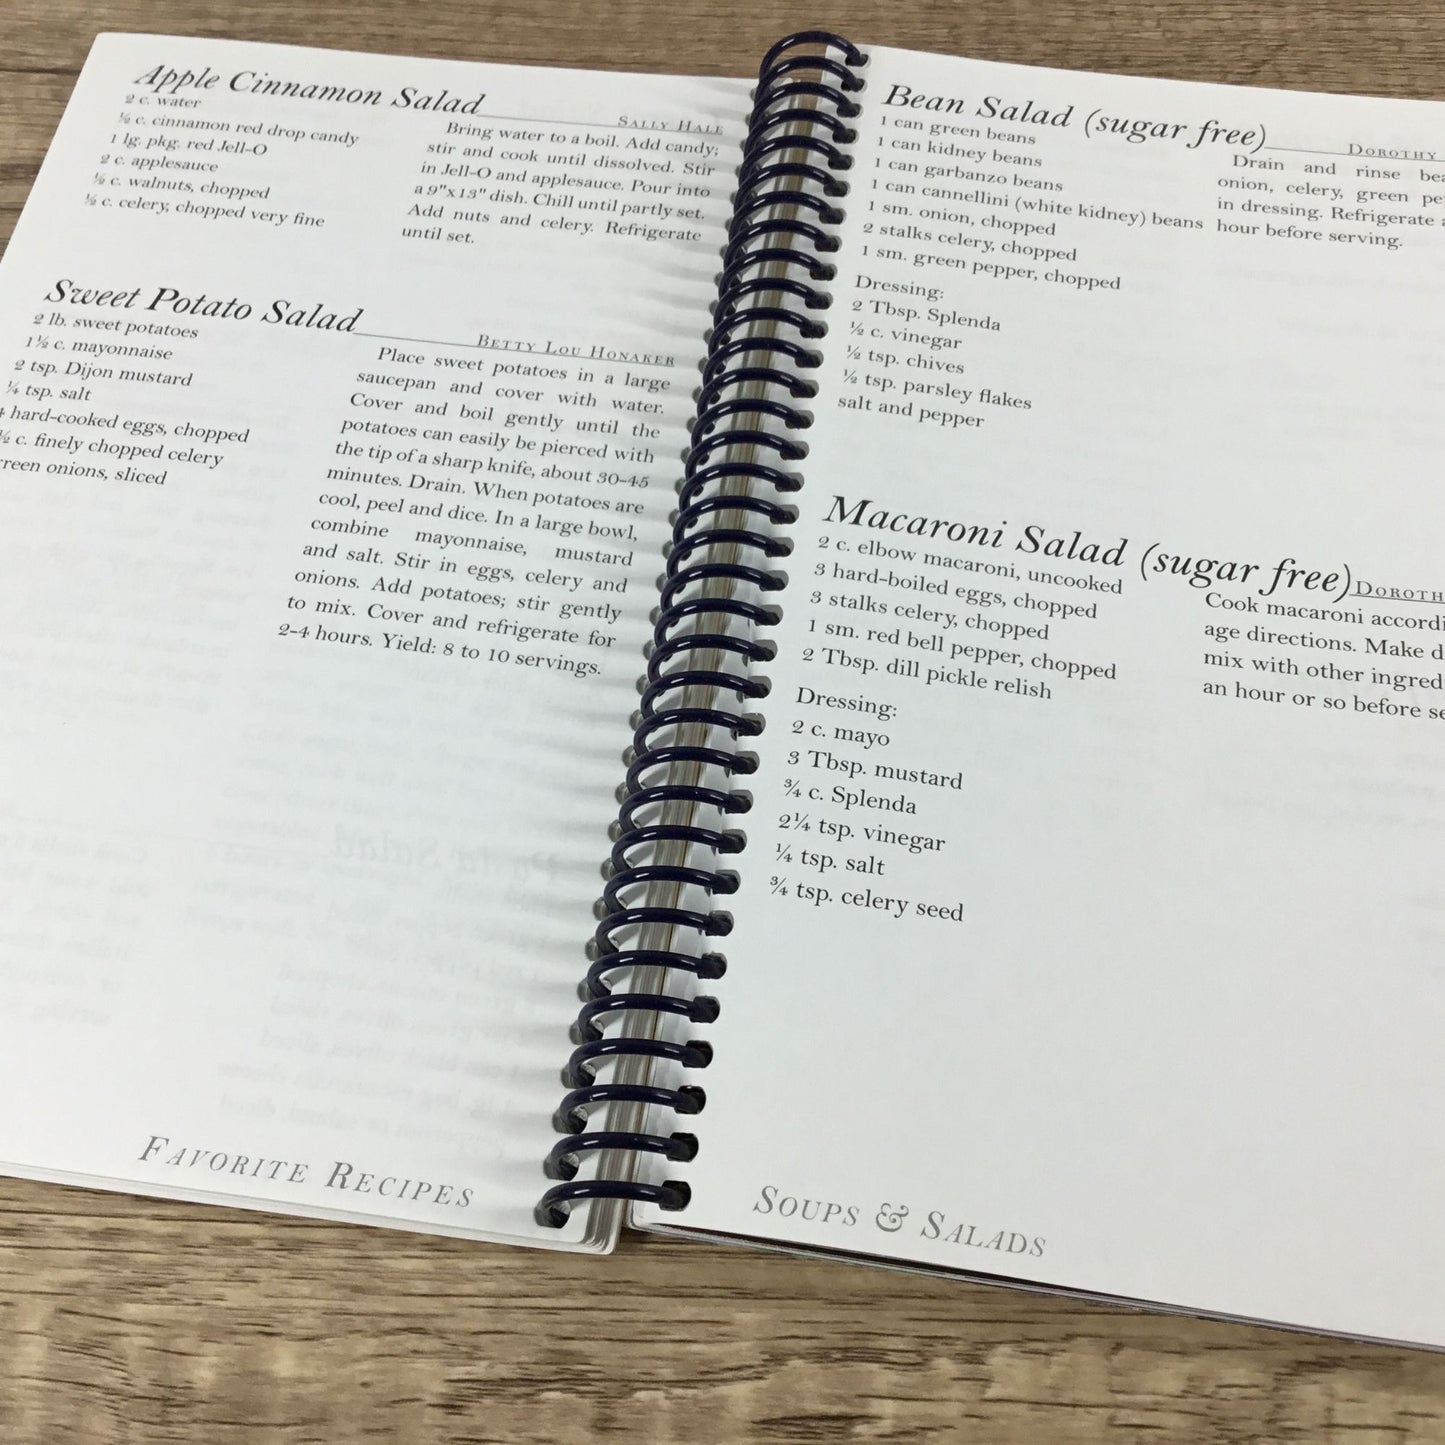 Apple Cinnamon Salad
Sally Hale
2 c. water
½ c. cinnamon red drop candy
1 lg. pkg. red Jell-O
2 c. applesauce
½ c. walnuts, chopped
½ c. celery, chopped very fine
Bring water to a boil. Add candy;
stir and cook until dissolved. Stir
in Jell-O and applesauce. Pour into
a 9"x13" dish. Chill until partly set.
Add nuts and celery. Refrigerate
until set.
Sweet Potato Salad
Betty Lou Honaker
2 lb. sweet potatoes
1½ c. mayonnaise
2 tsp. Dijon mustard
¼ tsp. salt
4 hard-cooked eggs, chopped
½ c. finely chopped celery
onions, sliced
Place sweet potatoes in a large
saucepan and cover with water.
Cover and boil gently until the
potatoes can easily be pierced with
the tip of a sharp knife, about 30-45
minutes. Drain. When potatoes are
cool, peel and dice. In a large bowl,
combine mayonnaise, mustard
and salt. Stir in eggs, celery and
onions. Add potatoes; stir gently
to mix. Cover and refrigerate for
2-4 hours. Yield: 8 to 10 servings.
Favorite Recipes
Bean Salad (sugar free)
Dorothy
1 can green beans
1 can kidney beans
1 can garbanzo beans
1 can cannellini (white kidney) beans
1 sm. onion, chopped
2 stalks celery, chopped
1 sm. green pepper, chopped
Dressing:
2 Tbsp. Splenda
½ c. vinegar
½ tsp. chives
½ tsp. parsley flakes
salt and pepper
Drain and rinse
onion, celery, green
in dressing. Refrigerate
hour before serving.
Macaroni Salad (sugar free)
2 c. elbow macaroni, uncooked
3 hard-boiled eggs, chopped
3 stalks celery, chopped
1 sm. red bell pepper, chopped
2 Tbsp. dill pickle relish
Dressing:
2 c. mayo
3 Tbsp. mustard
¾ c. Splenda
2¼ tsp. vinegar
¼ tsp. salt
¾ tsp. celery seed
Cook macaroni
age directions. Make
mix with other
an hour or so before
Soups & Salads